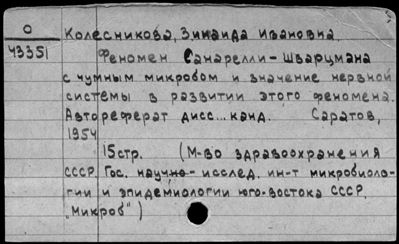 О
43351
Колесникова, Зинаида Ивановна.
Феномен Санарелли-Шварцмана
с чумным микробом и значение нервной
системы в развитии этого феномена.
Автореферат дисс...канд. Саратов,
1954
15стр. (М-во здравоохранения
СССР. Гос. научно-исслед. ин-т микробиоло-
гии и эпидемиологии юго-востока СССР
"Микроб")